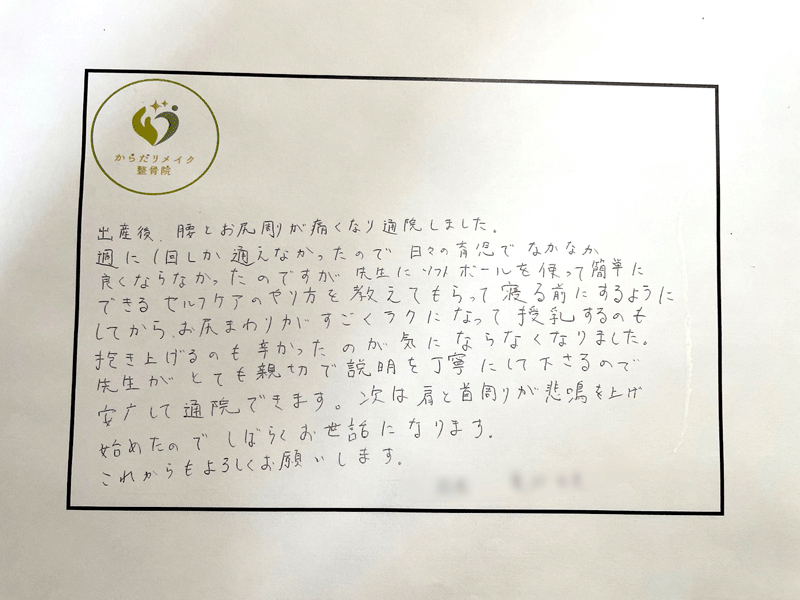 からだリメイク
整骨院
出産後、腰とお尻周りが痛くなり通院しました。
週に1回しか通えなかったので 日々の育児で なかなか
良くならなかったのですが 先生に ソフトボールを使って簡単に
できる セルフケアのやり方を 教えてもらって 寝る前にするように
してから、お尻まわりがすごくラクになって 授乳するのも
抱き上げるのも 辛かったのが気にならなくなりました。
先生が とても親切で説明を丁寧にして下さるので
安心して通院できます。次は肩と首周りが悲鳴を上げ
始めたので しばらくお世話になります。
これからもよろしくお願いします。